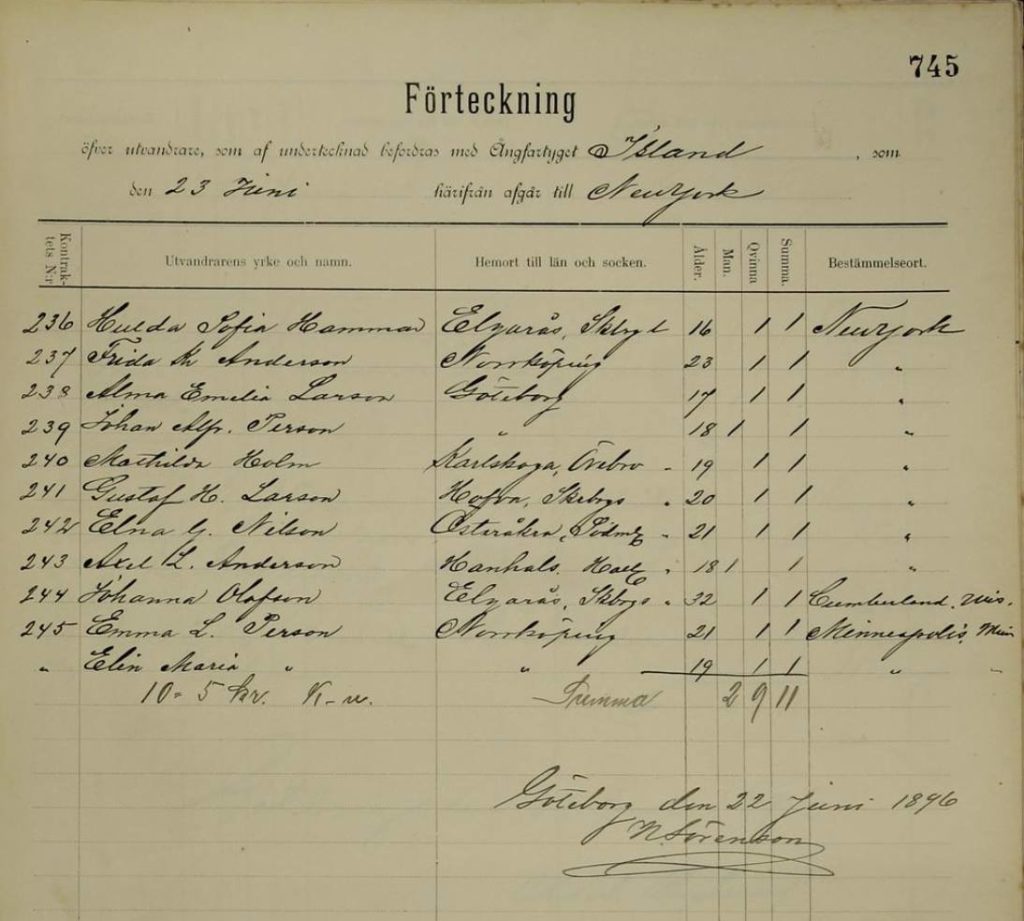 745
Förteckning
öfver utvandrare, som af undertecknad befordras med Ångfartyget Island, som
den 23 Juni härifrån afgår till NewYork
Kontraktets N:r Utvandrarens yrke och namn. Hemort till län och socken. Ålder. Man. Qvinna Summa. Bestämmelseort.
236 Hulda Sofia Hammar Elgarås, Skbrg l 16 1 1 NewYork
237 Frida Anderson Norrköping 23 1 1 "
238 Alma Emelia Larson Göteborg 17 1 1 "
239 Johan Alfr. Person " 18 1 1 "
240 Mathilda Holm Karlskoga, Örebro " 19 1 1 "
241 Gustaf H. Larson Hofva, Skrbgs " 20 1 1 "
242 Elna G. Nilson Österåker, Södml " 21 1 1 "
243 Axel L. Anderson Hanhals, Hall " 18 1 1 "
244 Johanna Olafson Elgarås, Skbrgs " 32 1 1 Cumberland, Wis.
245 Emma L. Person Norrköping 21 1 1 Minneapolis, Min
" Elin Maria " " 19 1 1 " "
10 = 5 kr. Summa 2 9 11
Göteborg den 22 Juni 1896
N. Sörenson